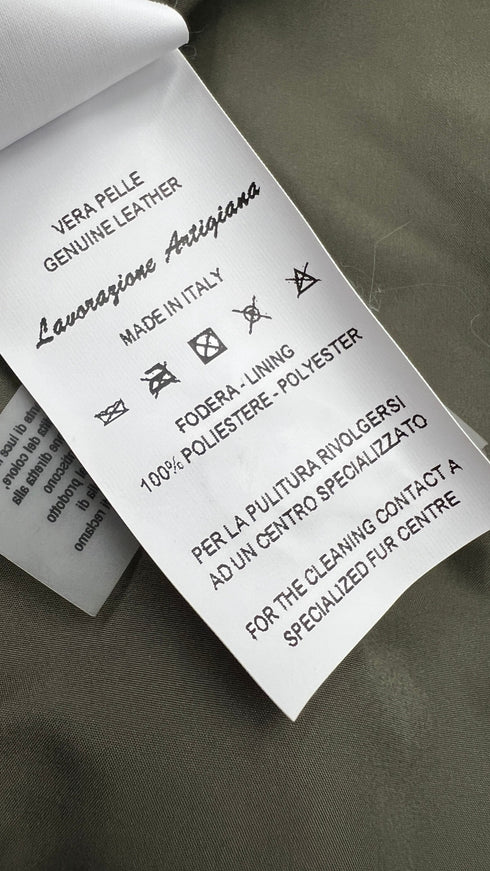 VERA PELLE
GENUINE LEATHER
Lavorazione Artigiana
MADE IN ITALY
FODERA - LINING
100% POLIESTERE - POLYESTER
PER LA PULITURA RIVOLGERSI
AD UN CENTRO SPECIALIZZATO
FOR THE CLEANING CONTACT A
SPECIALIZED FUR CENTRE